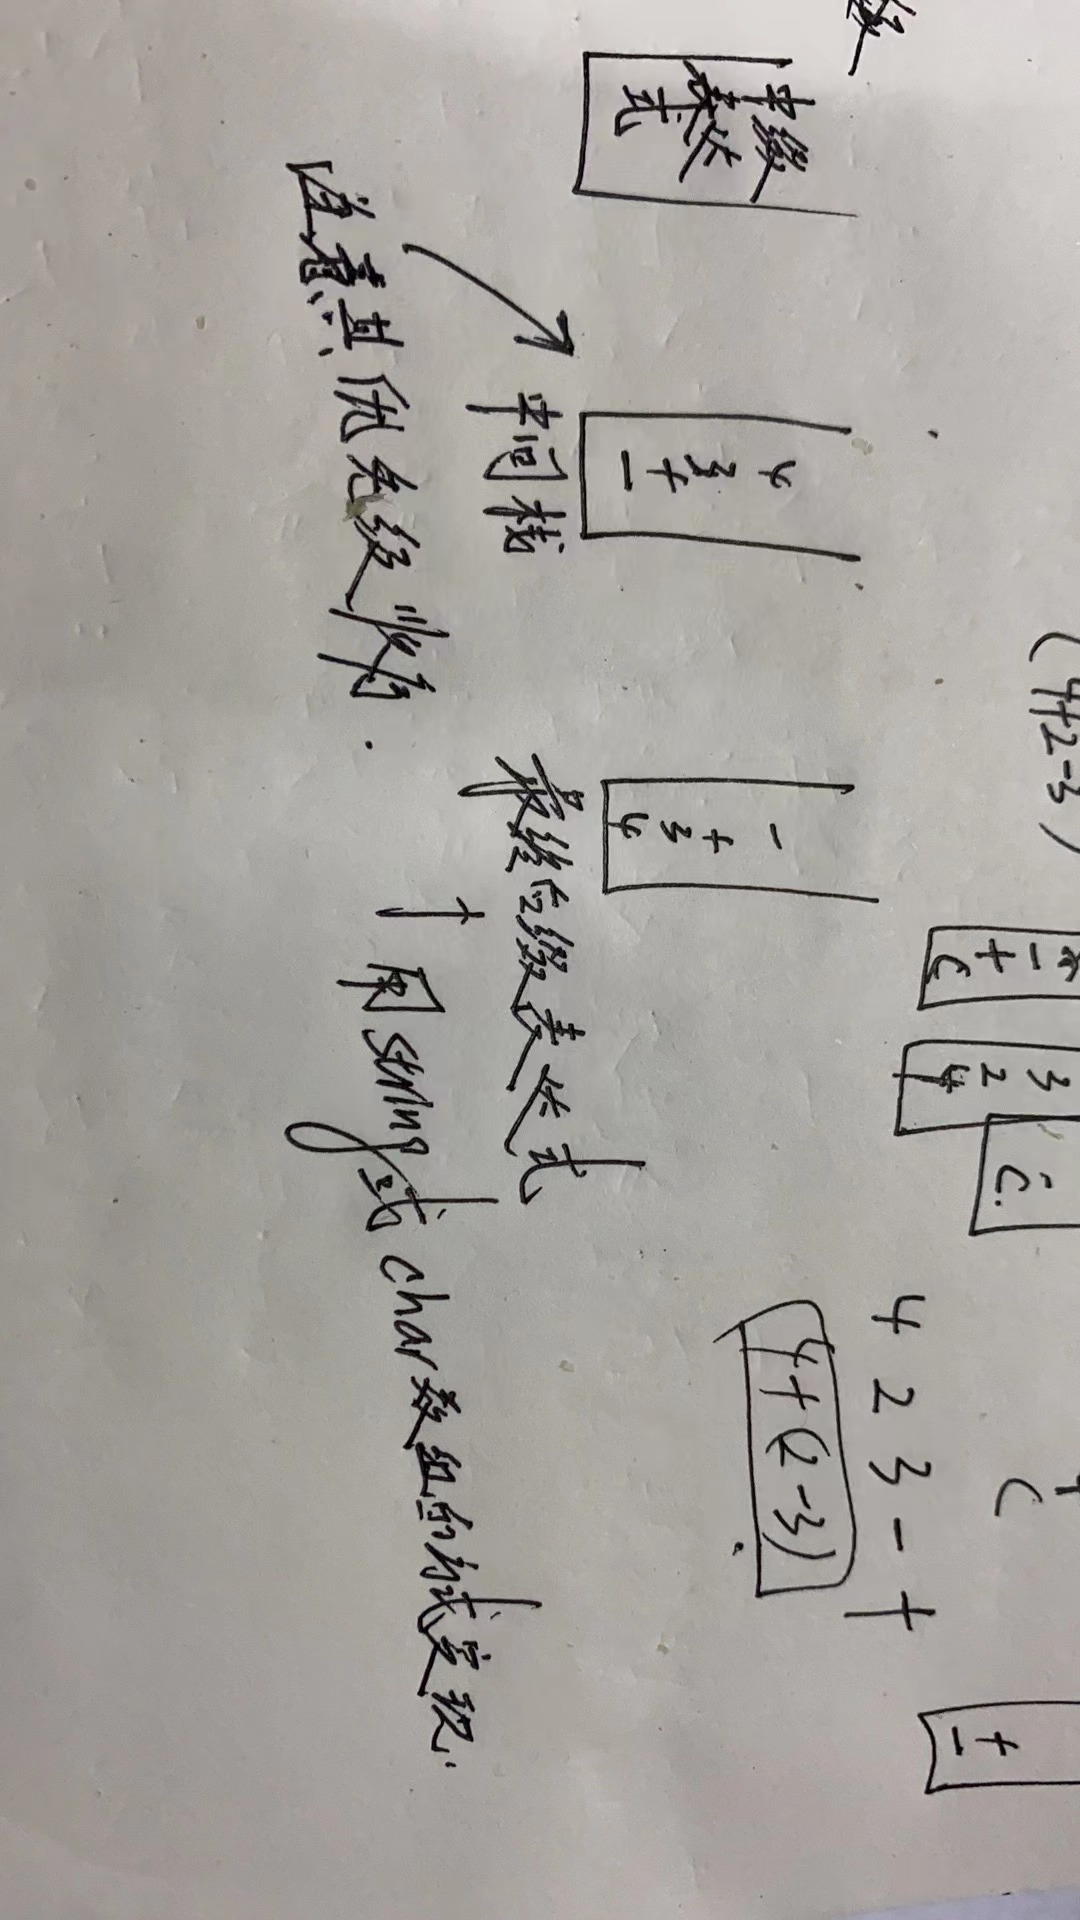 (4+2-3)
-
+
C
3
2
4
-
C.
C
+
-
4 2 3 - +
4+(2-3)
级
中缀
表达
式
4
3
+
-
中间栈
-
+
3
4
最终后缀表达式
注意其优先级顺序.
用string或char数组的方式实现.